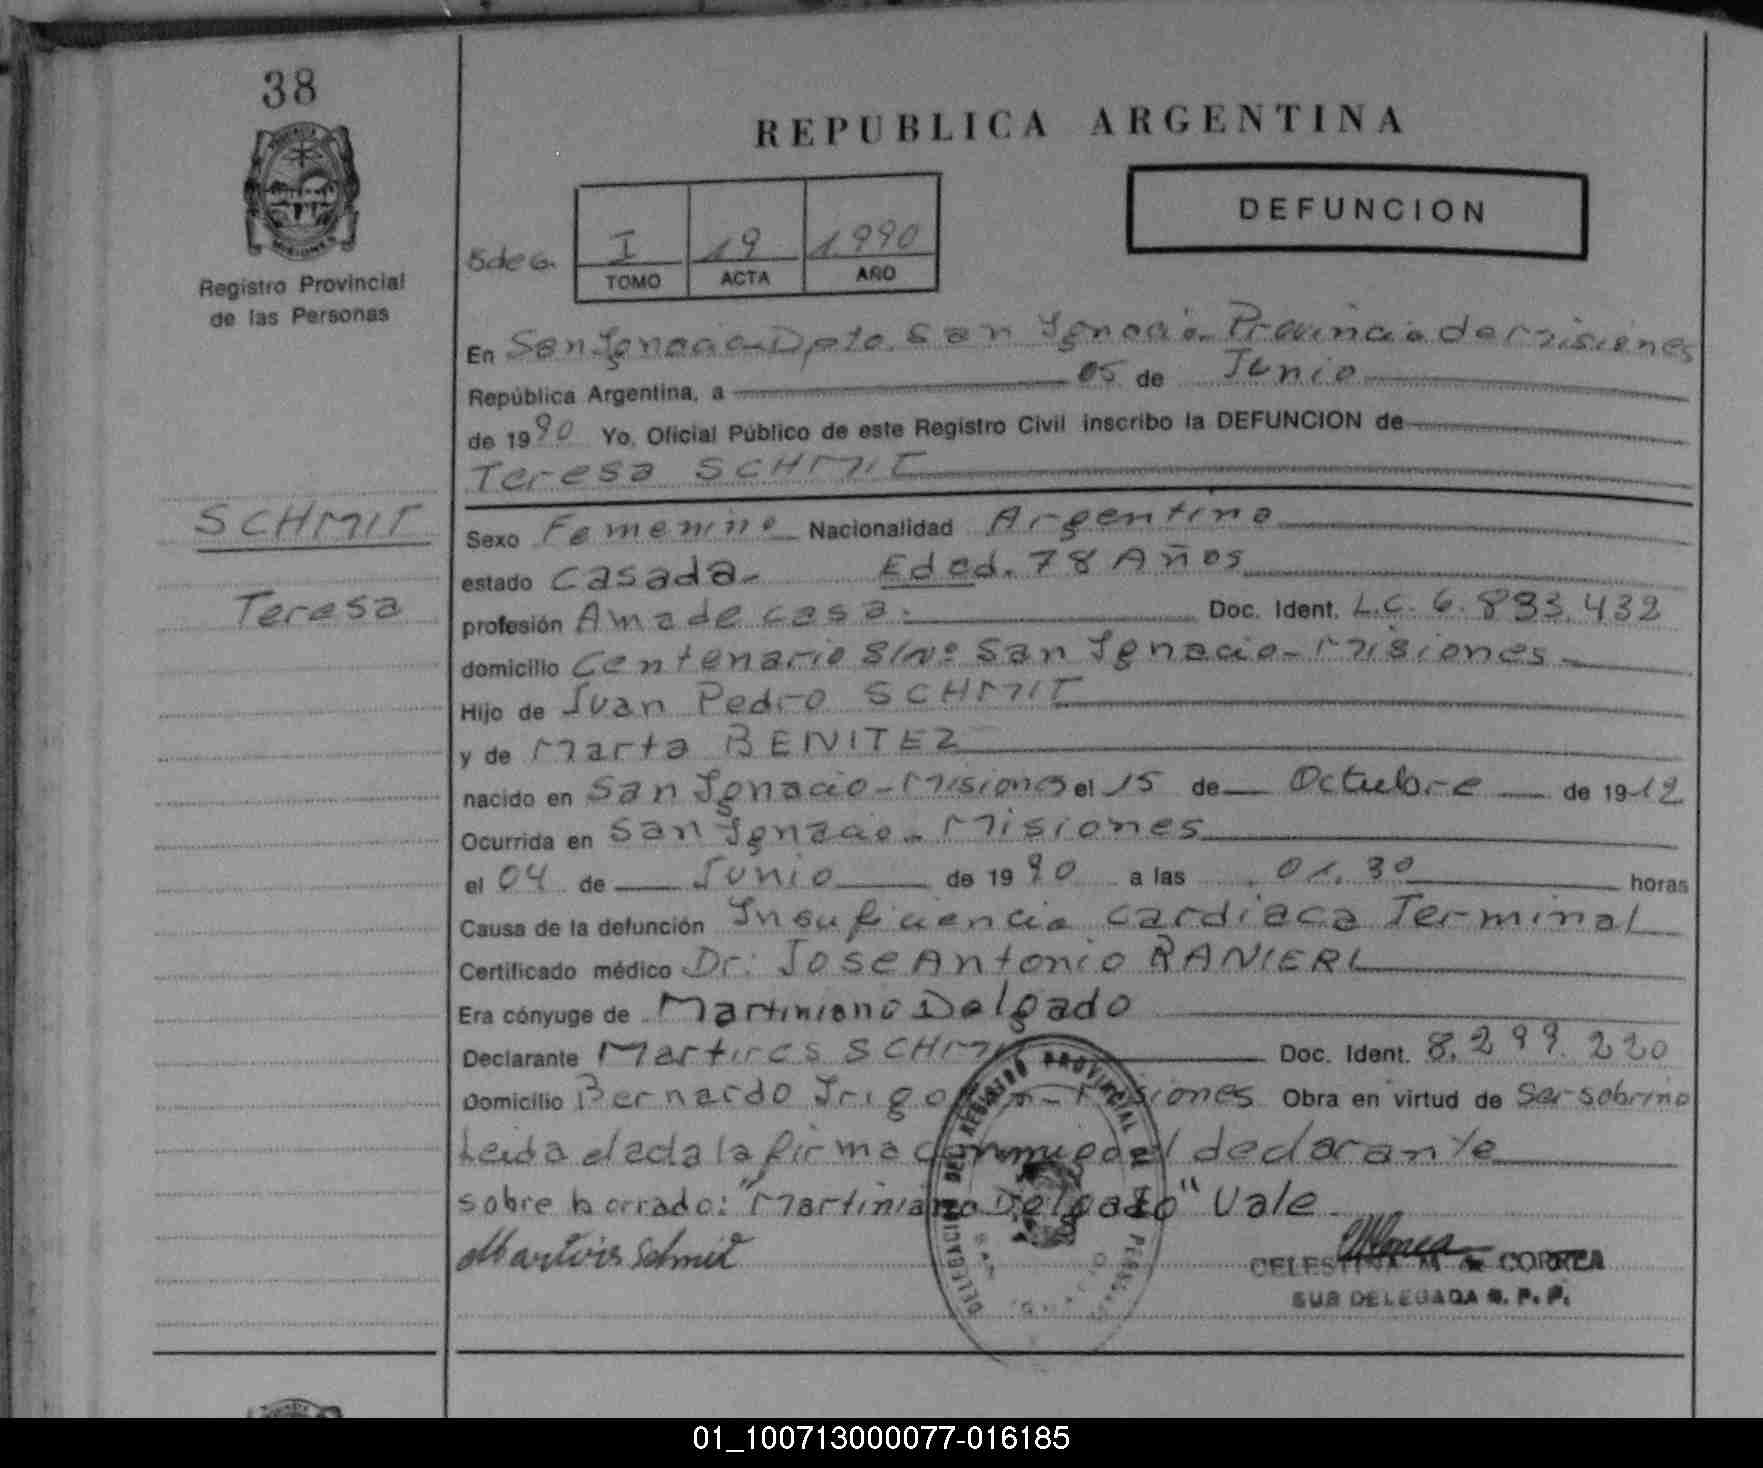 38
REPUBLICA ARGENTINA
DEFUNCION
Registro Provincial
de las Personas
5 de G.
I 19 1.990
TOMO ACTA AÑO
En San Ignacio - Dpto. San Ignacio - Provincia de Misiones
República Argentina, a 05 de Junio
de 1990 Yo, Oficial Público de este Registro Civil inscribo la DEFUNCION de
Teresa SCHMIT
SCHMIT
Teresa
Sexo Femenino Nacionalidad Argentina
estado Casada - Edad. 78 Años
profesión Ama de casa. Doc. Ident. L.C. 6.893.432
domicilio Centenario S/Nº San Ignacio - Misiones
Hijo de Juan Pedro SCHMIT
y de Marta BENITEZ
nacido en San Ignacio - Misiones el 15 de Octubre de 1912
Ocurrida en San Ignacio - Misiones
el 04 de Junio de 1990 a las 01.30 horas
Causa de la defunción Insuficiencia cardiaca Terminal
Certificado médico Dr: Jose Antonio RANIERI
Era cónyuge de Martiniano Delgado
Declarante Martires SCHMIT Doc. Ident. 8.299.220
Domicilio Bernardo Irigoyen - Misiones Obra en virtud de Ser sobrino
Leida el acta la firma conmigo el declarante
sobre borrado: "Martiniano Delgado" Vale
Martires Schmit
CELESTINA M de CORREA
SUB DELEGADA R. P. P.
DELEGACION DEL REGISTRO PROVINCIAL DE
01_100713000077-016185